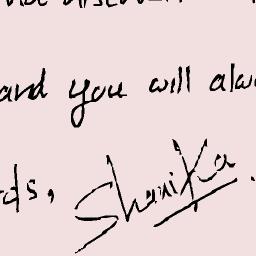 and you will alw
ds, Shanika.